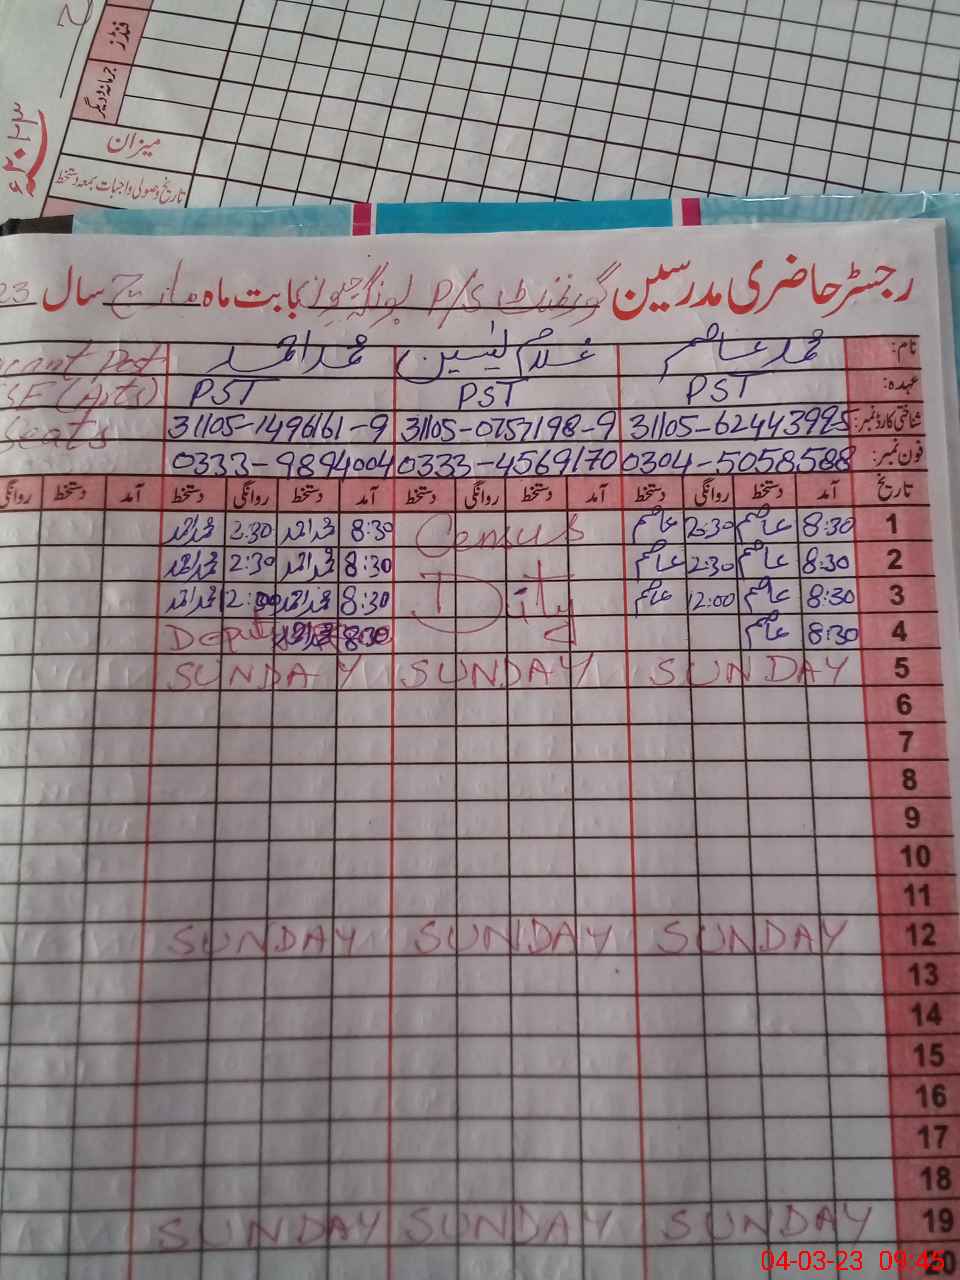 فنڈز
جرمانہ و دیگر
میزان
تاریخ وصولی واجبات بمعہ دستخط
۲۰۲۳ء
رجسٹر حاضری مدرسین گورنمنٹ P/S بابت ماہ مارچ سال 23
نام: محمد عاصم غلام یٰسین محمد احمد Vacant Post
عہدہ: PST PST PST SE (Arts)
شناختی کارڈ نمبر: 31105-6244399-5 31105-0757198-9 31105-1496161-9 Seats
فون نمبر: 0304-5058588 0333-4569170 0333-9894004
تاریخ آمد دستخط روانگی دستخط آمد دستخط روانگی دستخط آمد دستخط روانگی دستخط آمد دستخط روانگی
1 8:30 عاصم 2:30 عاصم Census 8:30 محمد احمد 2:30 محمد احمد
2 8:30 عاصم 2:30 عاصم 8:30 محمد احمد 2:30 محمد احمد
3 8:30 عاصم 12:00 عاصم Duty 8:30 محمد احمد 12:00 محمد احمد
4 8:30 عاصم 8:30 محمد احمد
5 SUNDAY SUNDAY SUNDAY
6
7
8
9
10
11
12 SUNDAY SUNDAY SUNDAY
13
14
15
16
17
18
19 SUNDAY SUNDAY SUNDAY
20
04-03-23 09:45